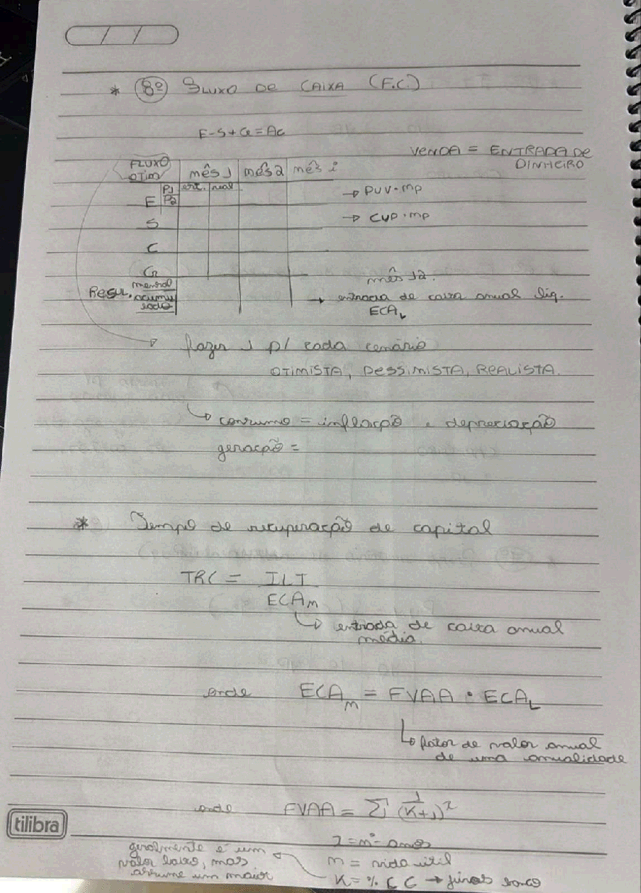 * 8º FLUXO DE CAIXA (F.C.)
E-S+G=AC
VENDA = ENTRADA DE
DINHEIRO
FLUXO OTIM mês 1 mês 2 mês i
P1 est. real
E P2 → PUV.mp
S → CUP.mp
C
G
mês 12.
Resul. mensal
acumulado
→ entrada de caixa anual liq.
ECAL
fazer 1 p/ cada cenário
OTIMISTA, PESSIMISTA, REALISTA.
consumo = inflação e depreciação
geração =
* Tempo de recuperação de capital
TRC = ILI
ECAm
entrada de caixa anual
média.
onde ECAM = FVAA . ECAL
fator de valor anual
de uma anualidade
onde FVAA = Σ 1/(K+1)²
tilibra
geralmente é um
valor baixo, mas
assume um maior
I = nº anos
m = vida útil
K = % CC → juros banco